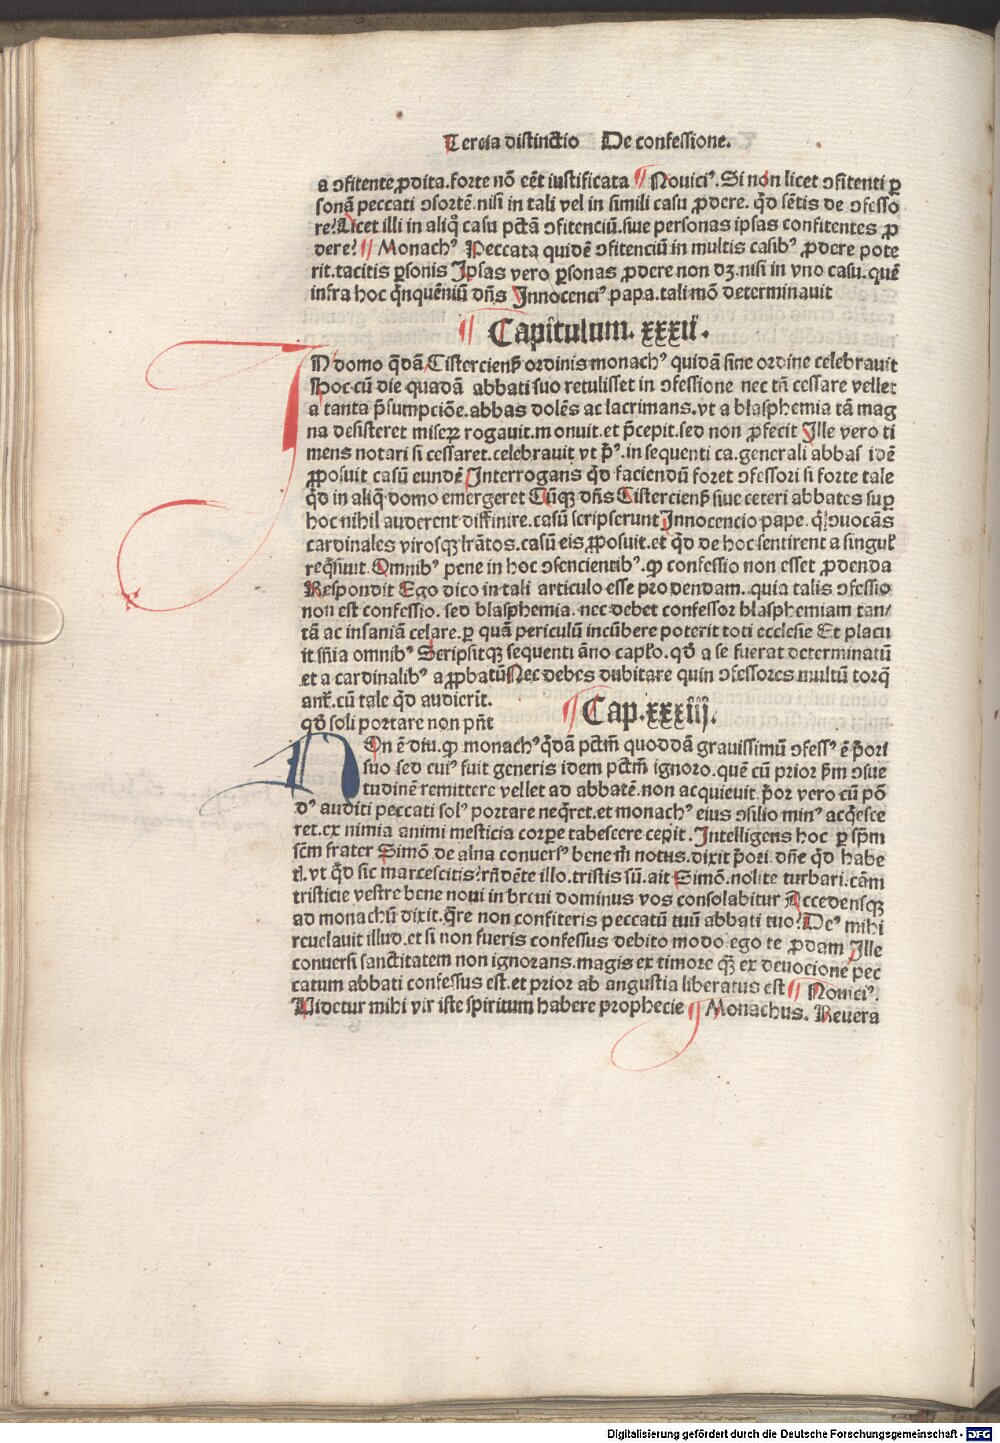 Tercia distinctio De confessione.
a ↄfitente ꝓdita.forte nō eēt iustificata ¶ Nouiciꝰ.Si non licet ↄfitenti ꝑ
sonā peccati ↄsortē.nisi in tali vel in simili casu ꝓdere. qd̄ sētis de ↄfesso
re?Licet illi in aliq̊ casu pctā ↄfitenciū.siue personas ipsas confitentes ꝓ
dere? ¶ Monachꝰ Peccata quidē ↄfitenciū in multis casibꝰ ꝓdere pote
rit.tacitis ꝑsonis Ipsas vero ꝑsonas ꝓdere non dꝫ.nisi in vno casu.quē
infra hoc qͥnquēniū dn̄s Innocenciꝰ papa.tali mō determinauit
¶ Capitulum. xxxii.
IN domo qͣdā Cisterciens̄ ordinis monachꝰ quidā sine ordine celebrauit
Hoc cū die quadā abbati suo retulisset in ↄfessione nec tn̄ cessare vellet
a tanta p̄sumpciōe.abbas dolēs ac lacrimans.vt a blasphemia tā mag
na desisteret miseꝝ rogauit.monuit.et p̄cepit.sed non ꝓfecit Ille vero ti
mens notari si cessaret.celebrauit vt pͥꝰ.in sequenti ca.generali abbas idē
ꝓposuit casū eundē Interrogans qd̄ faciendū foret ↄfessori si forte tale
qd̄ in aliq̊ domo emergeret Cūqꝫ dn̄s Cisterciens̄ siue ceteri abbates suꝑ
hoc nihil auderent diffinire.casū scripserunt Innocencio pape.qͥ ↄuocās
cardinales virosqꝫ lr̄atos.casū eis ꝓposuit.et qd̄ de hoc sentirent a singul̄
reqͥsiuit Omnibꝰ pene in hoc ↄsencientibꝰ.ꝙ confessio non esset ꝓdenda
Respondit Ego dico in tali articulo esse prodendam.quia talis ↄfessio
non est confessio.sed blasphemia.nec debet confessor blasphemiam tan/
tā ac insaniā celare.ꝑ quā periculū incūbere poterit toti ecclesie Et placu
it sn̄ia omnibꝰ Scripsitqꝫ sequenti āno capl̄o.qd̄ a se fuerat determinatū
et a cardinalibꝰ aꝓbatū Nec debes dubitare quin ↄfessores multū torq̄
ant̄.cū tale qd̄ audierit.
qd̄ soli portare non pn̄t ¶ Cap.xxxiij.
NOn ē diu.ꝙ monachꝰ qͥdā pctm̄ quoddā grauissimū ↄfessꝰ ē pͥori
suo sed cuiꝰ fuit generis idem pctm̄ ignoro.quē cū prior pͥm ↄsue
tudinē remittere vellet ad abbatē.non acquieuit pͥor vero cū pō
dꝰ auditi peccati solꝰ portare neqͥret.et monachꝰ eius ↄsilio minꝰ acqͥesce
ret.ex nimia animi mesticia corꝑe tabescere cepit.Intelligens hoc ꝑ spm̄
scm̄ frater Simō de alna conuersꝰ bene m̄ notus.dixit pͥori.dn̄e qd̄ habe
tꝭ.vt qd̄ sic marcescitis?rn̄dēte illo.tristis sū.ait Simō.nolite turbari.cām
tristicie vestre bene noui in breui dominus vos consolabitur Accedensqꝫ
ad monachū dixit.qͣre non confiteris peccatū tuū abbati tuo?Deꝰ mihi
reuelauit illud.et si non fueris confessus debito modo ego te ꝓdam Ille
conuersi sanctitatem non ignorans.magis ex timore qꝫ̄ ex deuocione pec
catum abbati confessus est.et prior ab angustia liberatus est ¶ Nouiciꝰ.
Uidetur mihi vir iste spiritum habere prophecie ¶ Monachus. Reuera
Digitalisierung gefördert durch die Deutsche Forschungsgemeinschaft - DFG